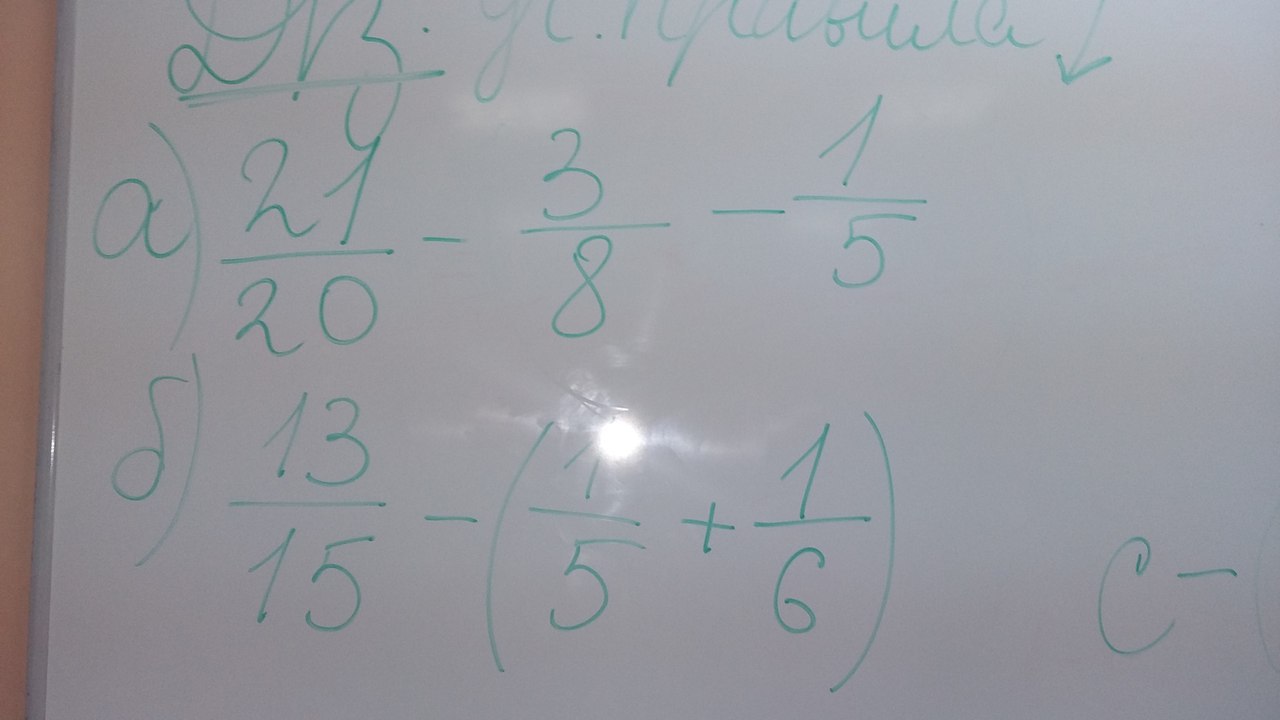 Д/З. уч. правила ↓
а) 21/20 - 3/8 - 1/5
б) 13/15 - (1/5 + 1/6)
с - (